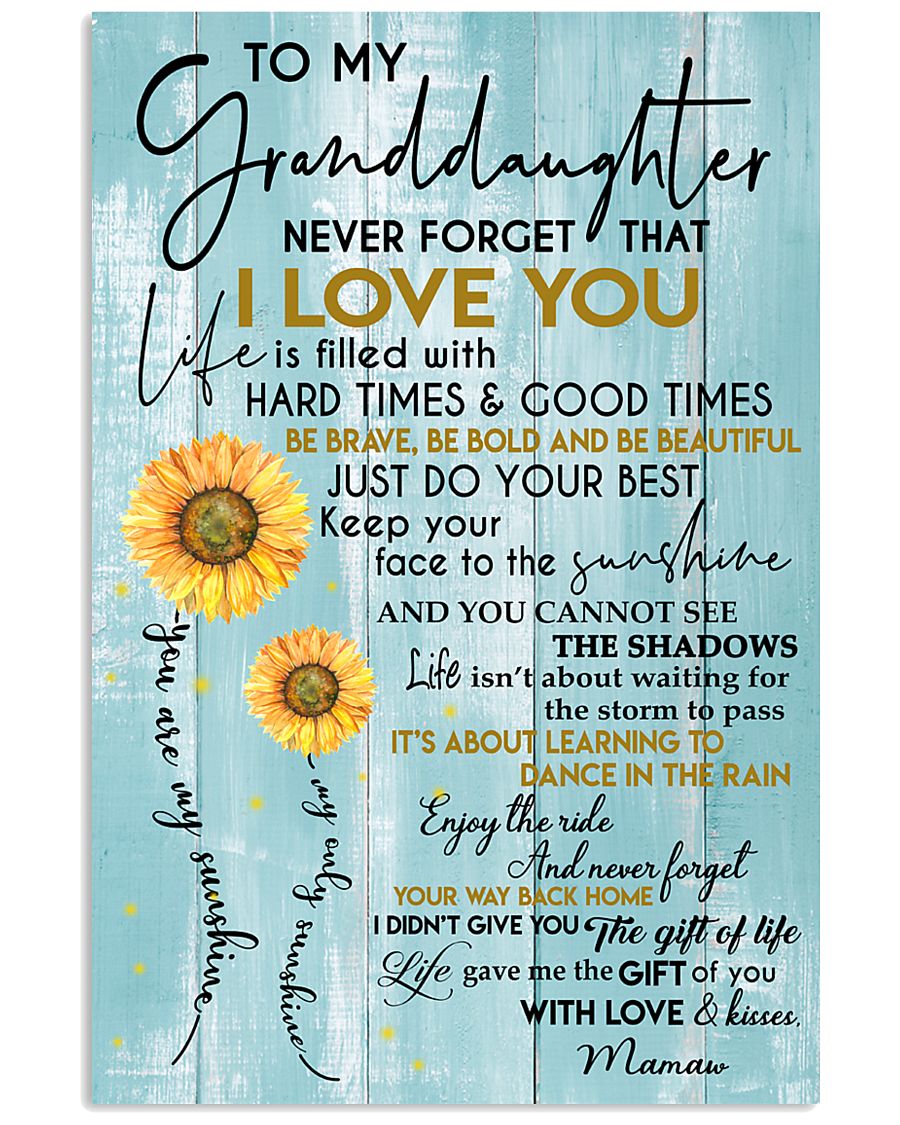 TO MY
Granddaughter
NEVER FORGET THAT
I LOVE YOU
Life is filled with
HARD TIMES & GOOD TIMES
BE BRAVE, BE BOLD AND BE BEAUTIFUL
JUST DO YOUR BEST
Keep your
face to the sunshine
AND YOU CANNOT SEE
THE SHADOWS
Life isn't about waiting for
the storm to pass
IT'S ABOUT LEARNING TO
DANCE IN THE RAIN
Enjoy the ride
And never forget
YOUR WAY BACK HOME
I DIDN'T GIVE YOU The gift of life
Life gave me the GIFT of you
WITH LOVE & kisses,
Mamaw
you are my sunshine
my only sunshine